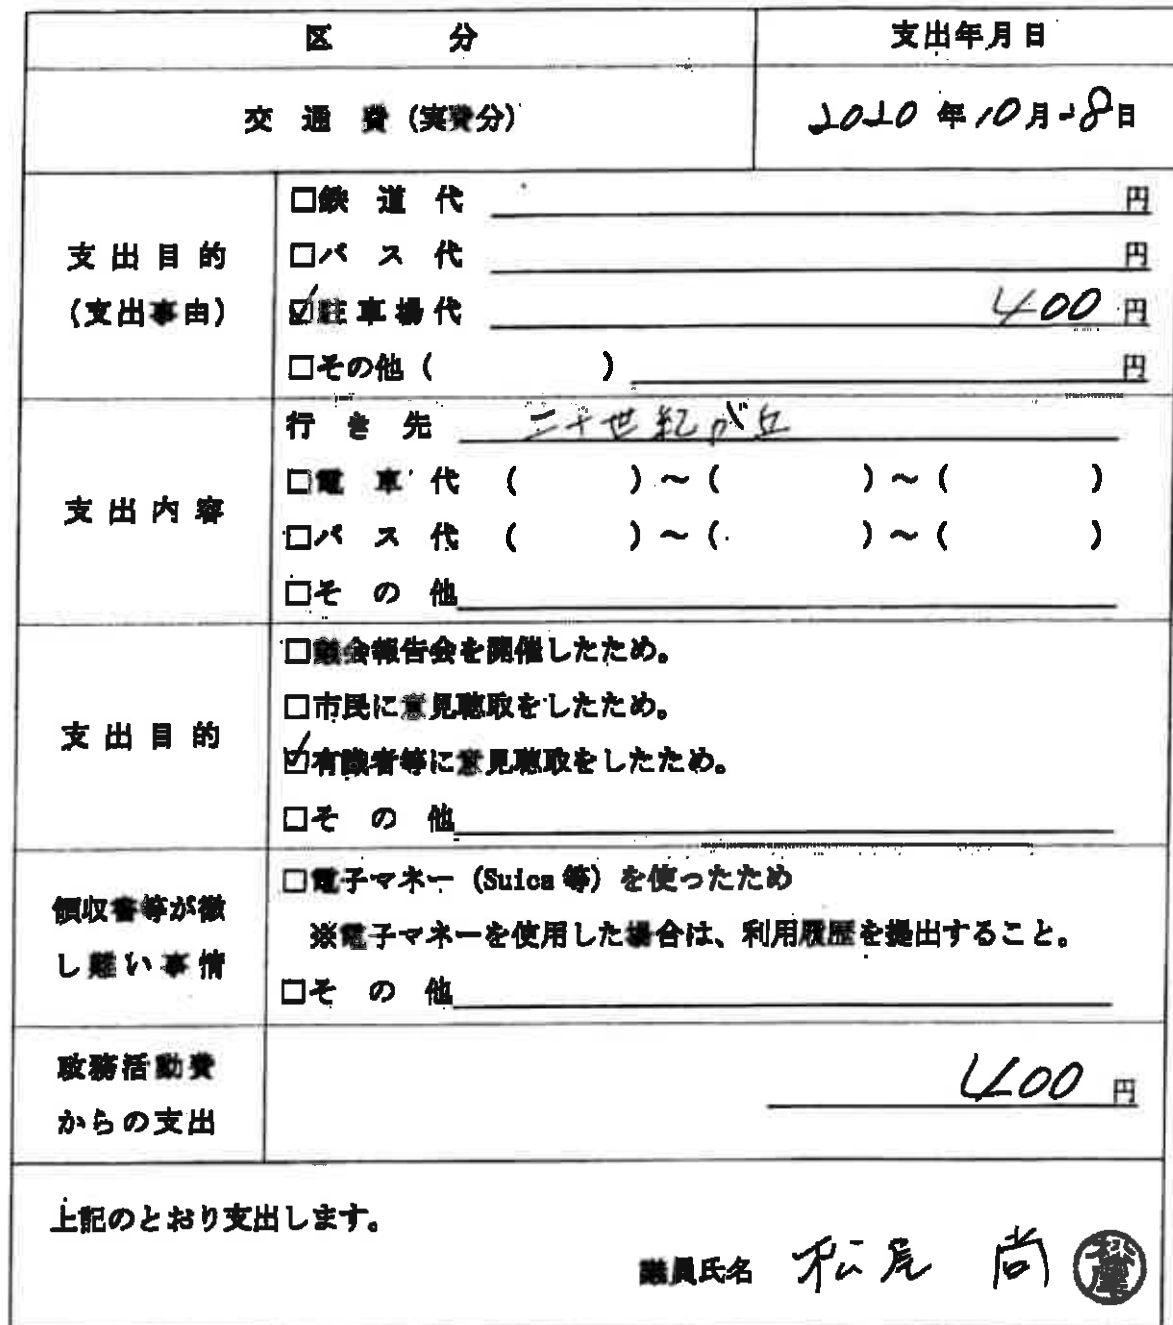 区 分 支出年月日
交 通 費 (実費分) 2020 年 10 月 28 日
支出目的
(支出事由)
□鉄 道 代 円
□バ ス 代 円
☑駐車場代 400 円
□その他 ( ) 円
支出内容
行 き 先 二十世紀が丘
□電 車 代 ( ) ～ ( ) ～ ( )
□バ ス 代 ( ) ～ ( ) ～ ( )
□そ の 他
支出目的
□議会報告会を開催したため。
□市民に意見聴取をしたため。
☑有識者等に意見聴取をしたため。
□そ の 他
領収書等が徴
し難い事情
□電子マネー (Suica 等) を使ったため
※電子マネーを使用した場合は、利用履歴を提出すること。
□そ の 他
政務活動費
からの支出
400 円
上記のとおり支出します。
議員氏名 松尾 尚